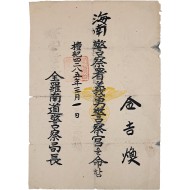 金吉煥
海南警察署義勇警察官을命함
檀紀四二八五年三月一日
全羅南道警察局長